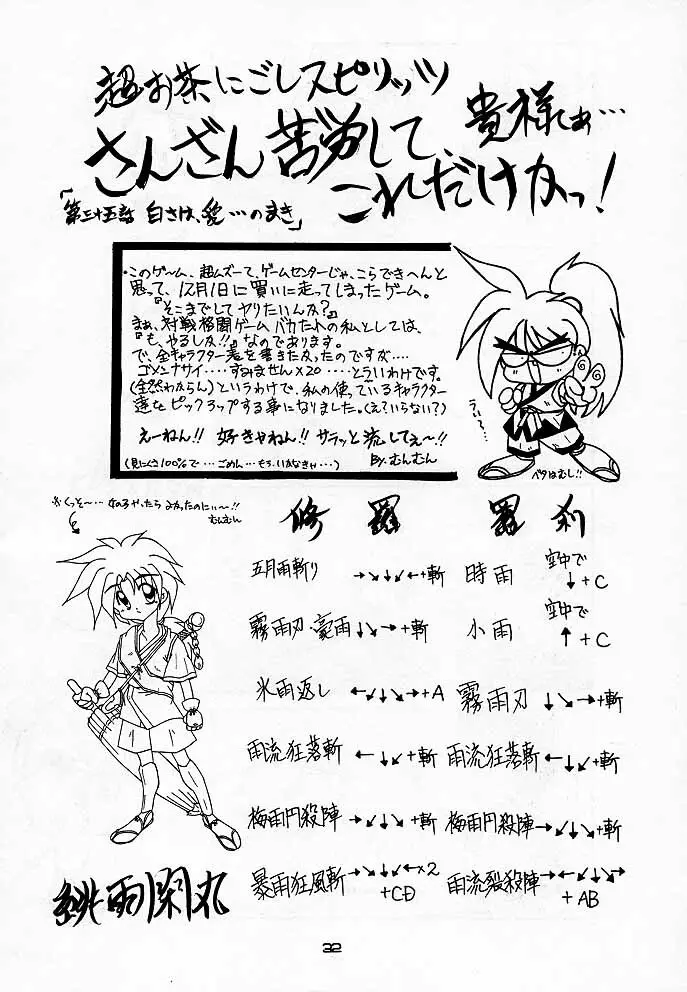 超お茶にごしスピリッツ
さんざん苦労して、
貴様しぁ…
これだけかっ!
「第三十五話 白さは、愛…のまき」
・このゲーム、超ムズーて、ゲームセンターじゃ、こらできへんと
思って、12月1日に買いに走ってしまったゲーム。
『そこまでして ヤリたいんか?』
まぁ、対戦格闘ゲーム バカたれの私としては、
『も、やるしか!!』なのであります。
で、全キャラクター表を書きたかったのですが‥‥
ゴメンナサイ‥‥すみません×20 ‥‥というわけです。
(全然わからん)というわけで、私の使っているキャラクター
達をピックアップする事になりました。(え?いらない?)
えーねん!! 好きやねん!! サラッと流してぇ〜!!
(見にくさ100%で…ごめん…もう、いかなきゃ…)
By.むんむん
うぃ〜ん…
ベタはむし!!
※くっそ〜… 女のコやったら よかったのにぃ〜!!
むんむん
修羅 羅刹
五月雨斬り →↘↓↙←+斬
時雨 空中で ↓+C
霧雨刃・豪雨 ↓↘→+斬
小雨 空中で ↑+C
氷雨返し ←↙↓↘→+A
霧雨刃 ↓↘→+斬
雨流狂落斬 ←↓↙+斬
雨流狂落斬 ←↓↙+斬
梅雨円殺陣 →↙↓↘+斬
梅雨円殺陣 →↙↓↘+斬
暴雨狂風斬 →↘↓↙←×2 +CD
雨流裂殺陣 →←↙↓↘→ +AB
緋雨閑丸
32